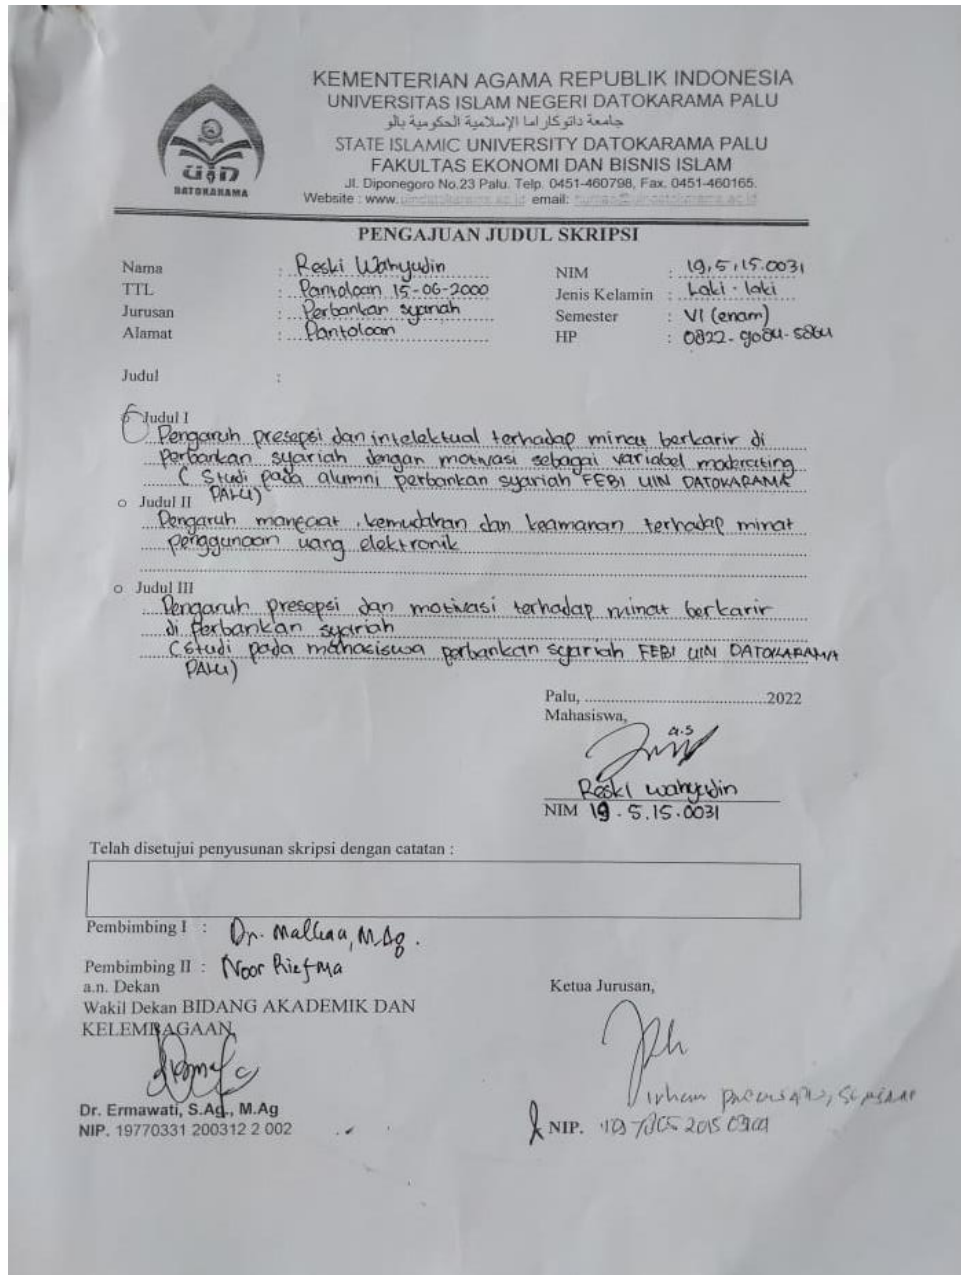 KEMENTERIAN AGAMA REPUBLIK INDONESIA
UNIVERSITAS ISLAM NEGERI DATOKARAMA PALU
جامعة داتوكاراما الإسلامية الحكومية بالو
STATE ISLAMIC UNIVERSITY DATOKARAMA PALU
FAKULTAS EKONOMI DAN BISNIS ISLAM
Jl. Diponegoro No.23 Palu. Telp. 0451-460798, Fax. 0451-460165.
Website : www. email:
uin
DATOKARAMA
PENGAJUAN JUDUL SKRIPSI
Nama : Reski Wahyudin NIM : 19.5.15.0031
TTL : Pantoloan 15-06-2000 Jenis Kelamin : Laki-laki
Jurusan : Perbankan syariah Semester : VI (enam)
Alamat : Pantoloan HP : 0822-9084-5864
Judul :
Judul I
Pengaruh presepsi dan intelektual terhadap minat berkarir di
perbankan syariah dengan motivasi sebagai variabel moderating
(Studi pada alumni perbankan syariah FEBI UIN DATOKARAMA
PALU)
o Judul II
Pengaruh manfaat, kemudahan dan keamanan terhadap minat
penggunaan uang elektronik
o Judul III
Pengaruh presepsi dan motivasi terhadap minat berkarir
di perbankan syariah
(Studi pada mahasiswa perbankan syariah FEBI UIN DATOKARAMA
PALU)
Palu, ......................................2022
Mahasiswa,
a.s
Reski wahyudin
NIM 19.5.15.0031
Telah disetujui penyusunan skripsi dengan catatan :
Pembimbing I : Dr. M.Ag.
Pembimbing II : Noor Riefma
a.n. Dekan
Wakil Dekan BIDANG AKADEMIK DAN
KELEMBAGAAN,
Dr. Ermawati, S.Ag., M.Ag
NIP. 19770331 200312 2 002
Ketua Jurusan,
NIP.